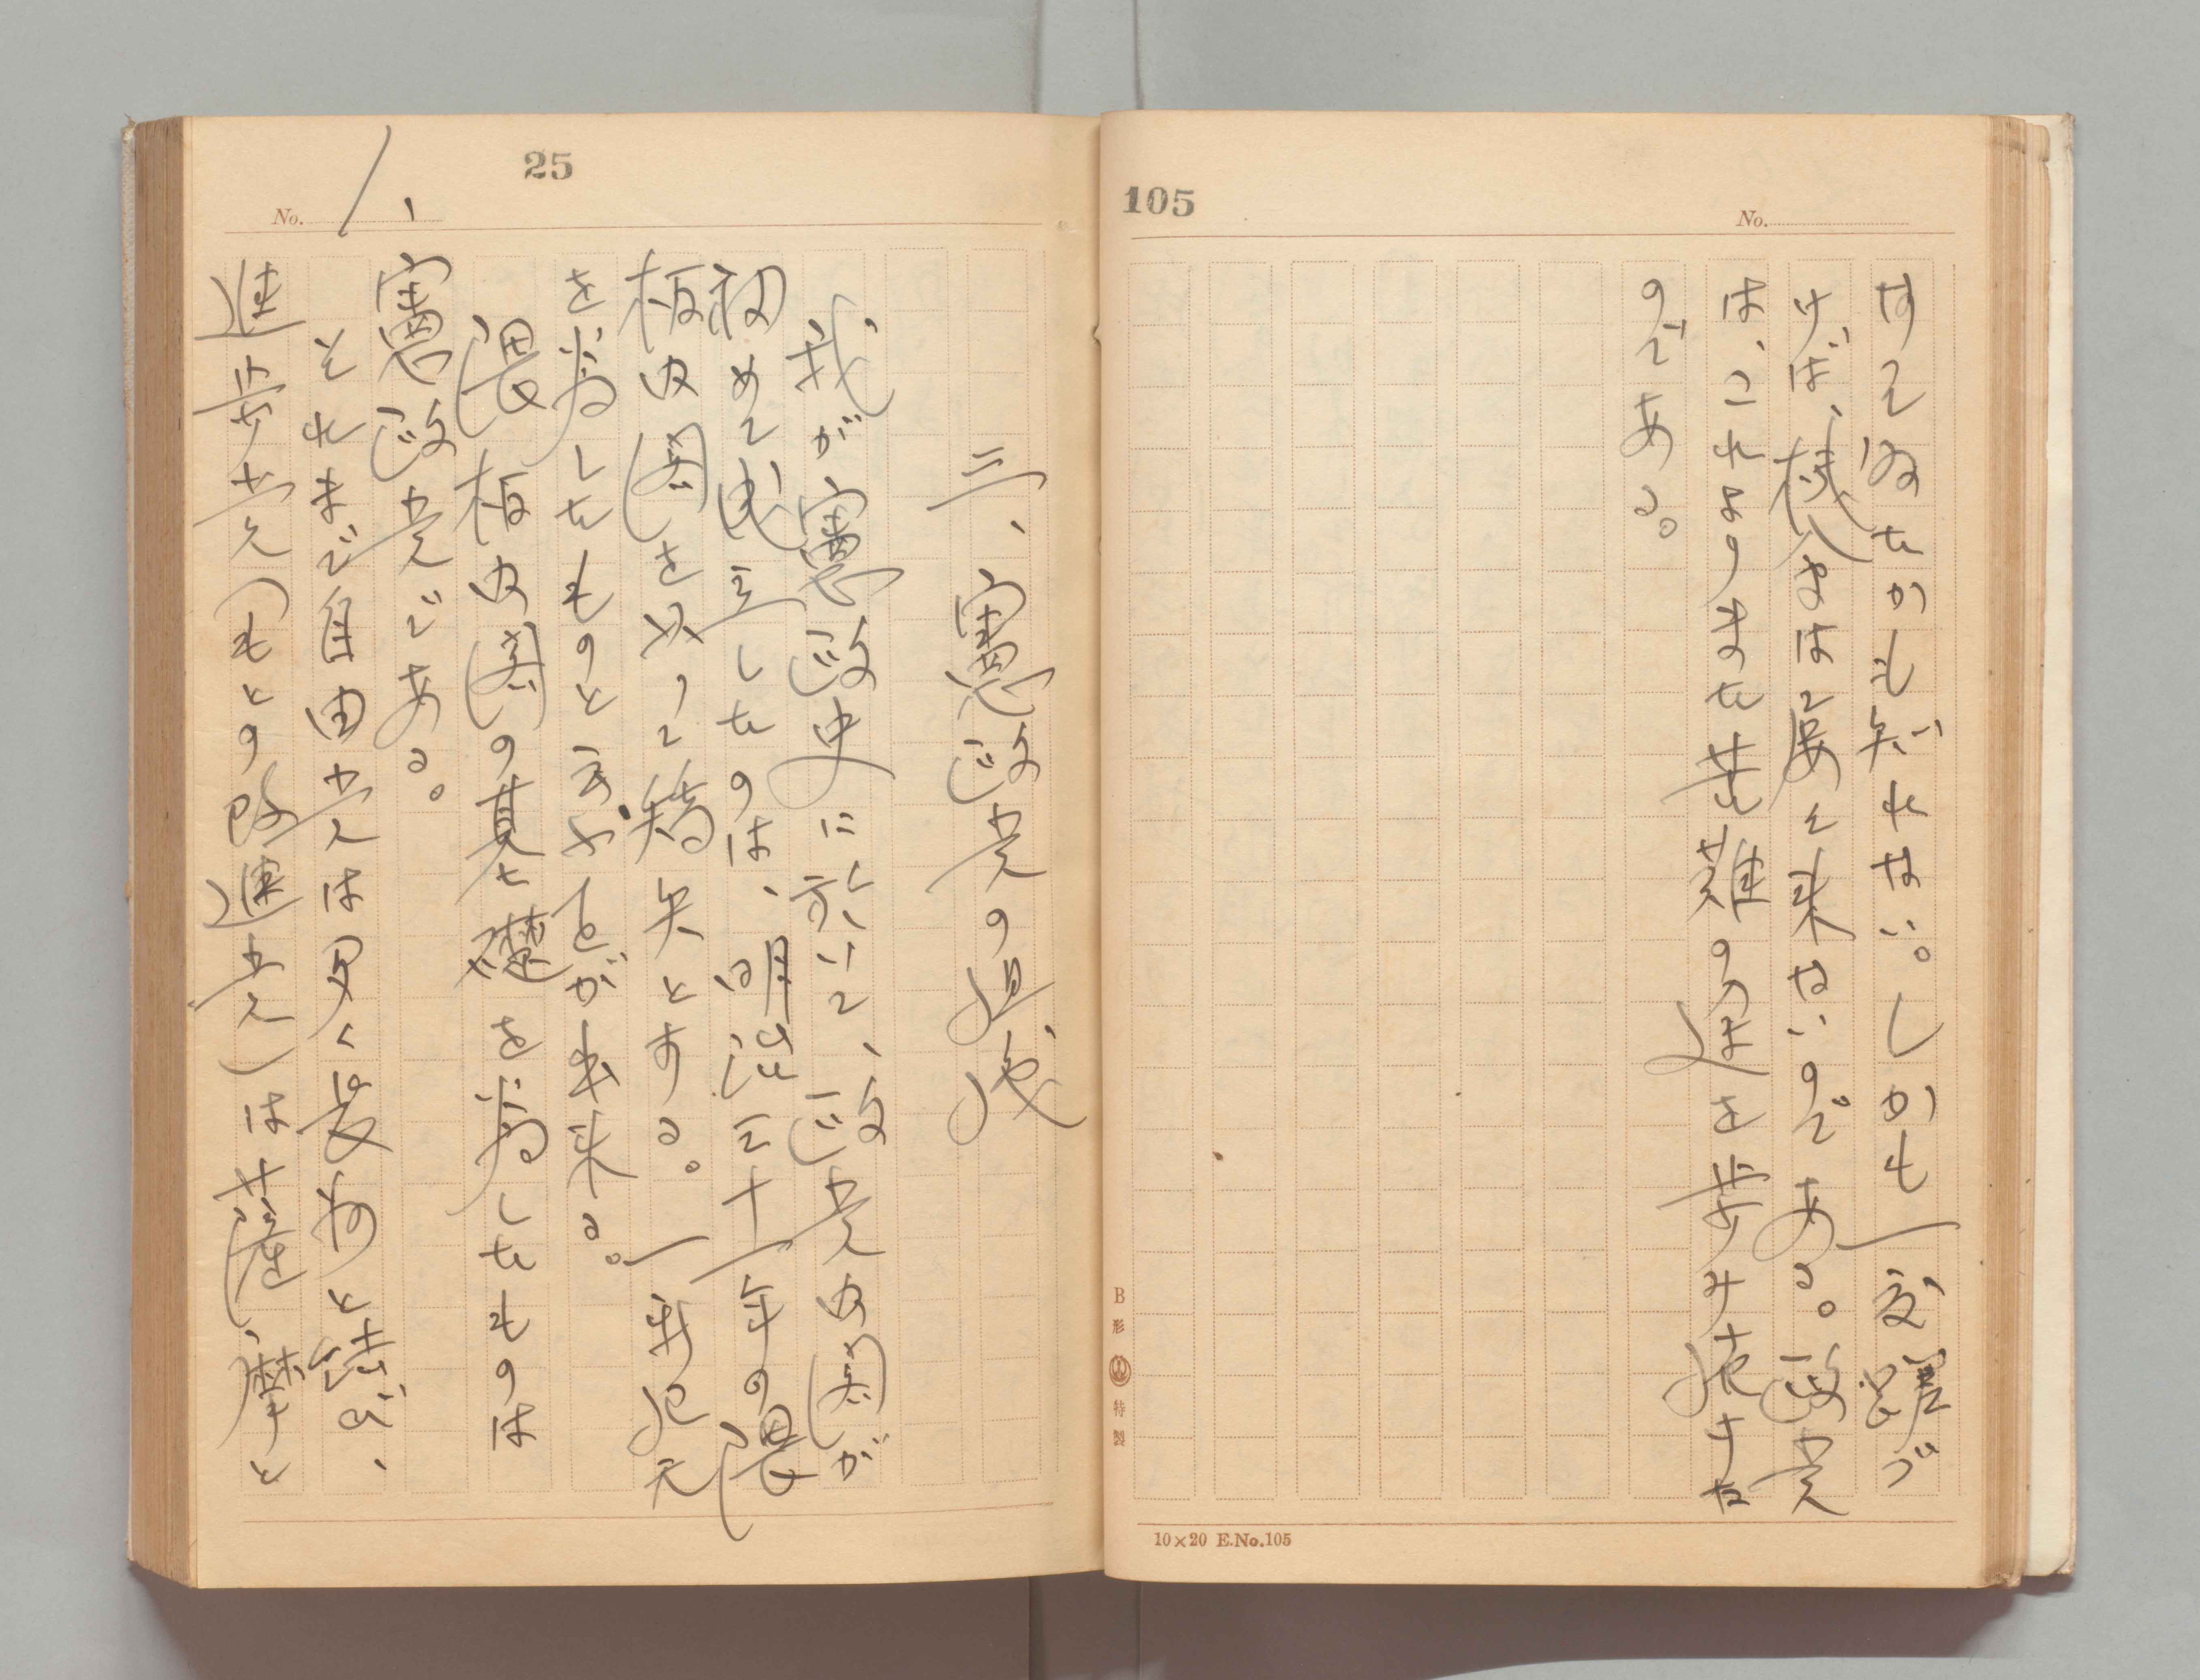 105
No.
なしてゐたかも知れない。しかも一度躍づ
けば、機会は屡々来ないのである。政党
は、これよりまた苦難の途を歩み続けた
のである。
B形 特製
10×20 E.No.105
25
No. 1、
三、憲政党の
我が憲政史に於いて、政党内閣が
初めて成立したのは、明治三十一年の隈
板内閣を以って嚆矢とする。一新紀元
を劃したものと言ふことが出来る。
隈板内閣の基礎を為したものは
憲政党である。
それまで自由党は男く長州と結び、
進歩党(もとの改進党)は薩摩と